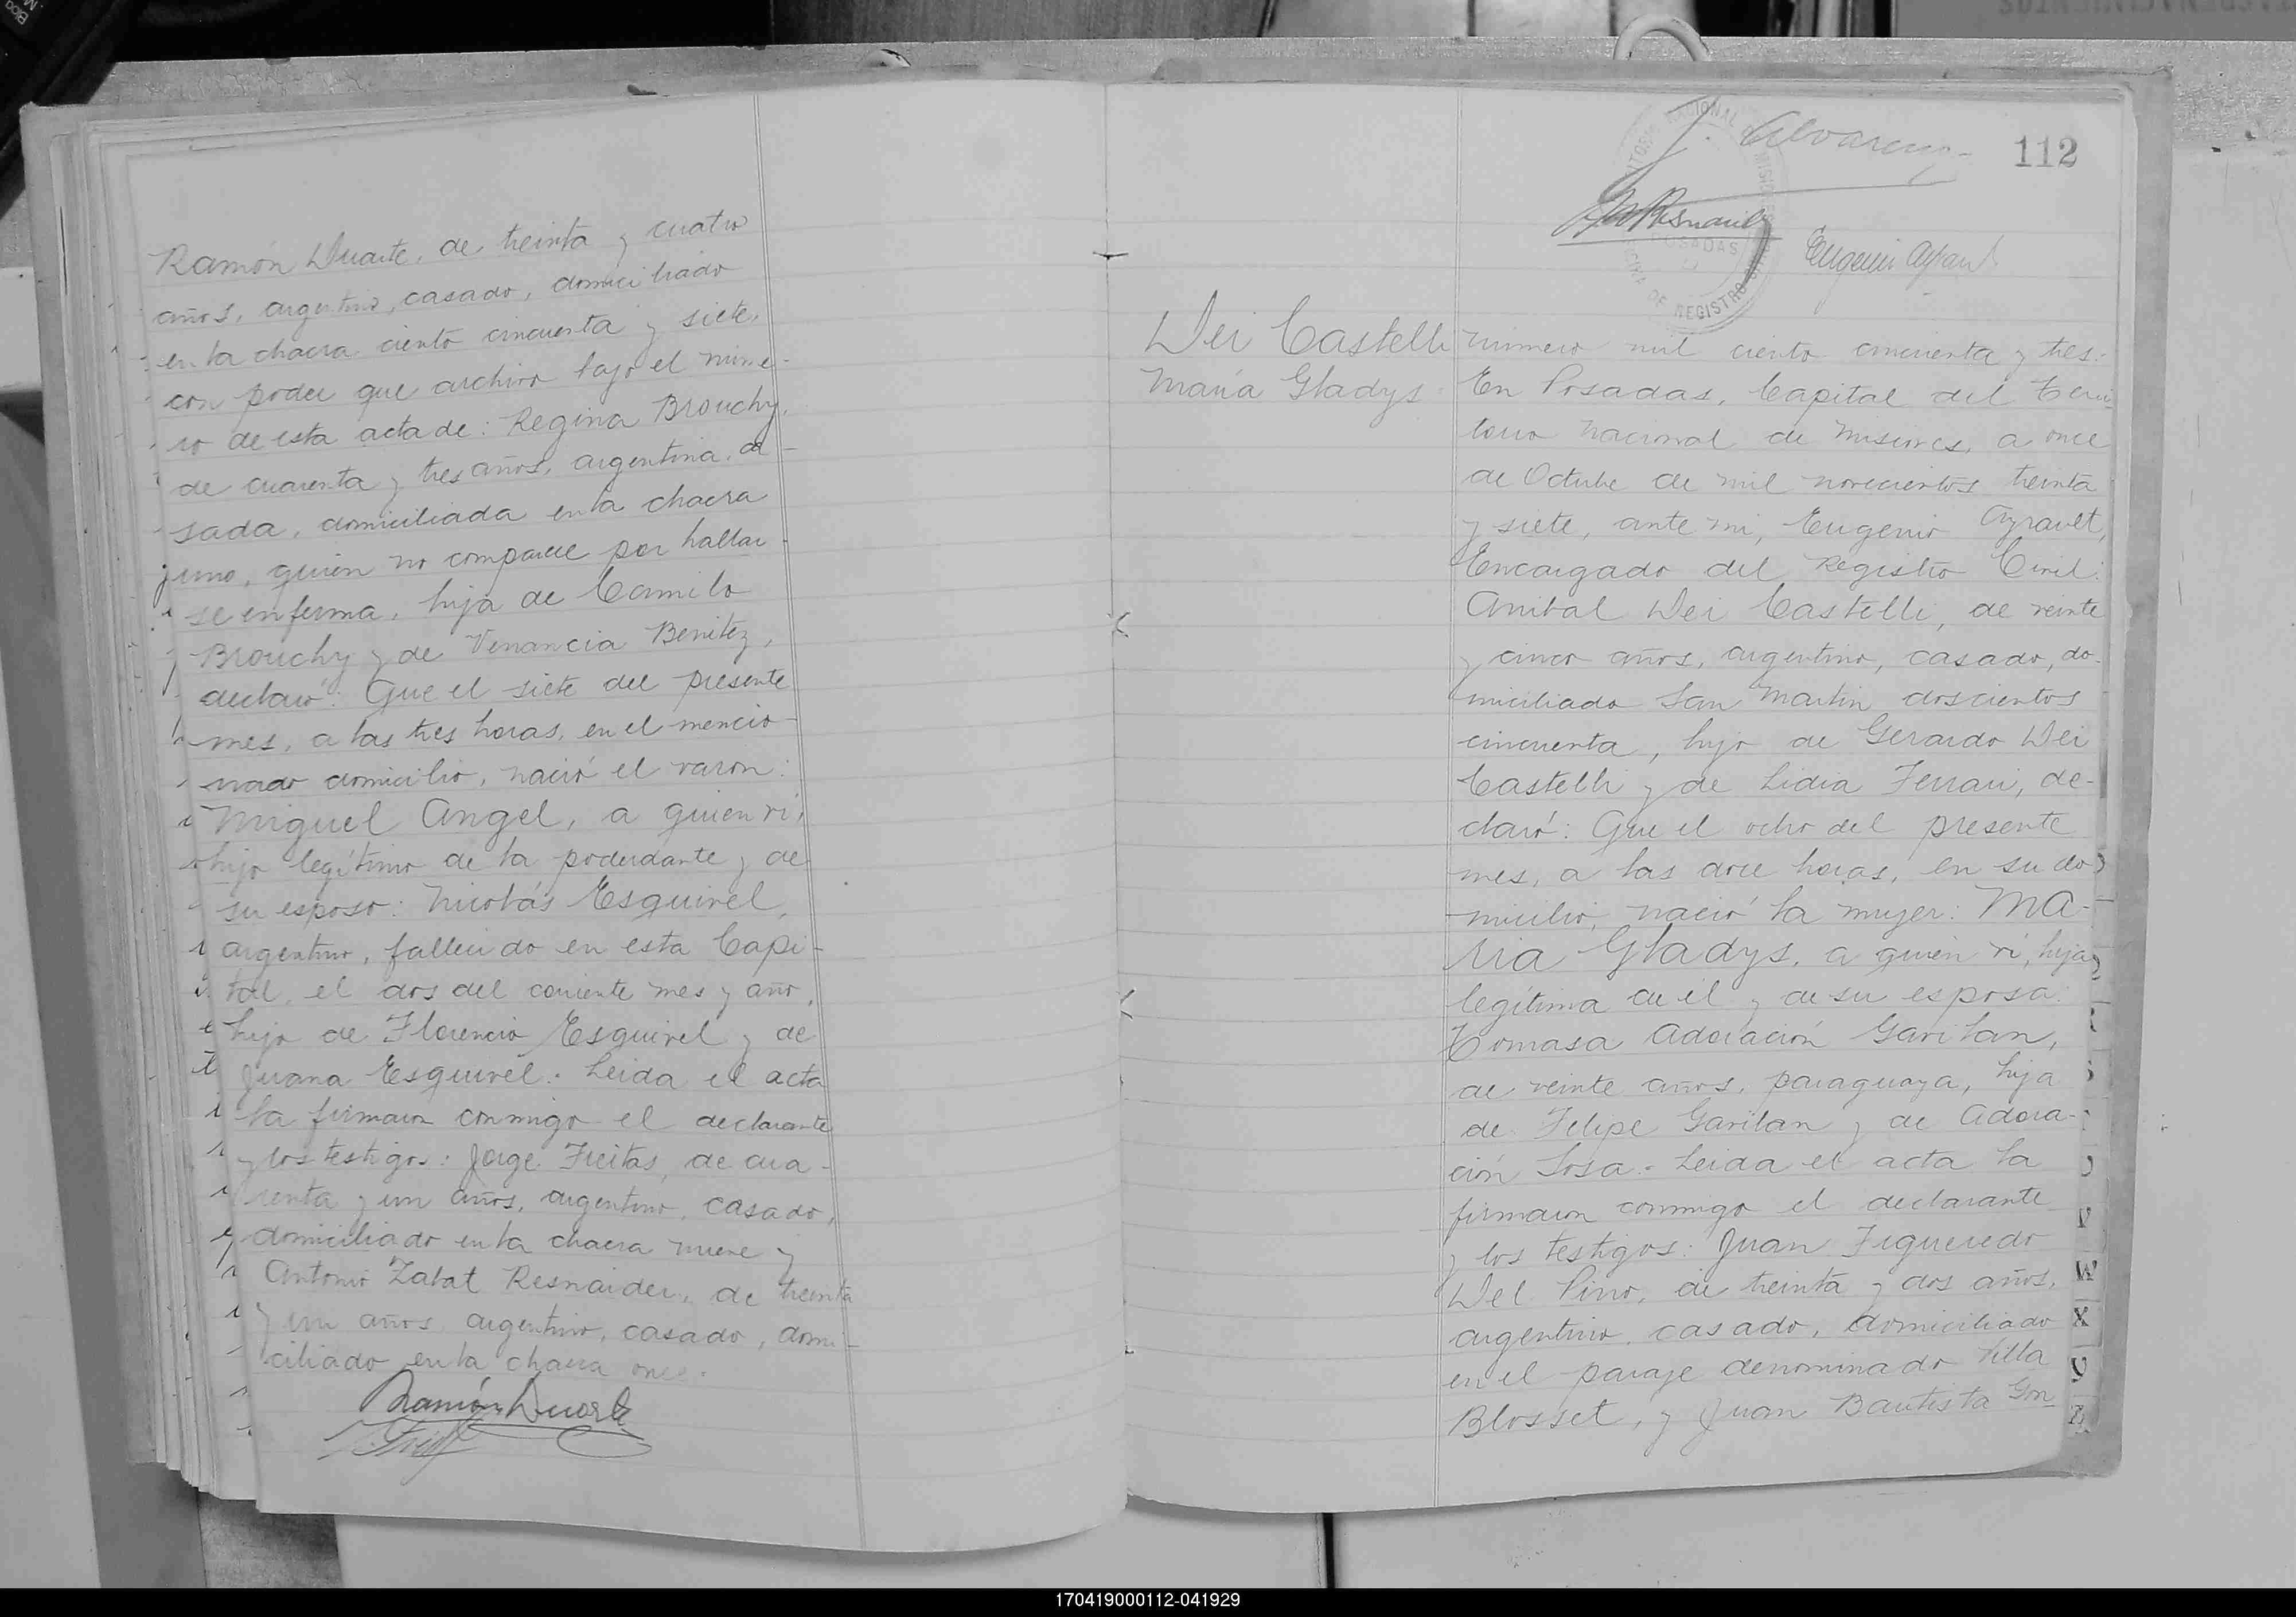 Ramón Duarte, de treinta y cuatro
años, argentino, casado, domiciliado
en la chacra ciento cincuenta y siete,
con poder que archivo bajo el núme-
ro de esta acta de: Regina Brouchy,
de cuarenta y tres años, argentina, ca-
sada, domiciliada en la chacra
uno, quien no comparece por hallar-
se enferma, hija de Camilo
Brouchy y de Venancia Benitez,
declaró: Que el siete del presente
mes, a las tres horas, en el mencio-
nado domicilio, nació el varon:
Miguel Angel, a quien ví,
hijo legítimo de la poderdante y de
su esposo: Nicolás Esquivel,
argentino, fallecido en esta Capi-
tal, el dos del corriente mes y año,
hijo de Florencio Esquivel y de
Juana Esquivel.- Leida el acta
la firmaron conmigo el declarante
y los testigos: Jorge Freitas, de cua-
renta y un años, argentino, casado,
domiciliado en la chacra nueve y
Antonio Zabat Resnaider, de treinta
y un años, argentino, casado, domi-
ciliado en la chacra once.
Ramón Duarte
112
TERRITORIO NACIONAL DE MISIONES
POSADAS
OFICINA DE REGISTRO CIVIL
Eugenio Ayraut
Dei Castelli
María Gladys
Número mil ciento cincuenta y tres:
En Posadas, Capital del Terri-
torio Nacional de Misiones, a once
de Octubre de mil novecientos treinta
y siete, ante mi, Eugenio Ayrault,
Encargado del Registro Civil:
Anibal Dei Castelli, de veinte
y cinco años, argentino, casado, do-
miciliado San Martín doscientos
cincuenta, hijo de Gerardo Dei
Castelli y de Lidia Ferrari, de-
claró: Que el ocho del presente
mes, a las doce horas, en su do-
micilio, nació la mujer: Ma-
ria Gladys, a quien ví, hija
legítima de él y de su esposa:
Tomasa Adoración Gavilan,
de veinte años, paraguaya, hija
de Felipe Gavilan y de Adora-
ción Sosa.- Leida el acta la
firmaron conmigo el declarante
y los testigos: Juan Figueredo
Del Pino, de treinta y dos años,
argentino, casado, domiciliado
en el paraje denominado Villa
Blosset, y Juan Bautista Gon
W
X
Y
Z
170419000112-041929